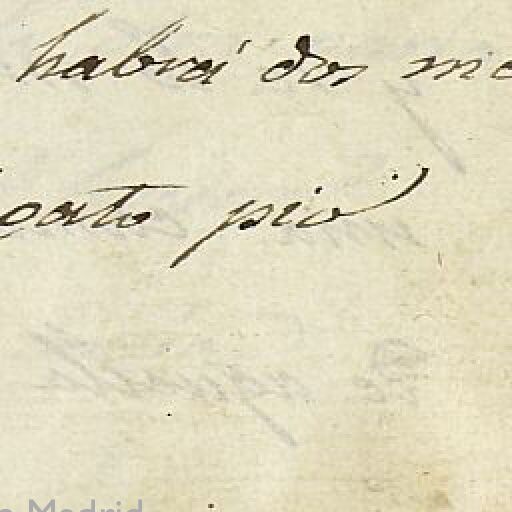 habrá dos me
gato pio
Madrid